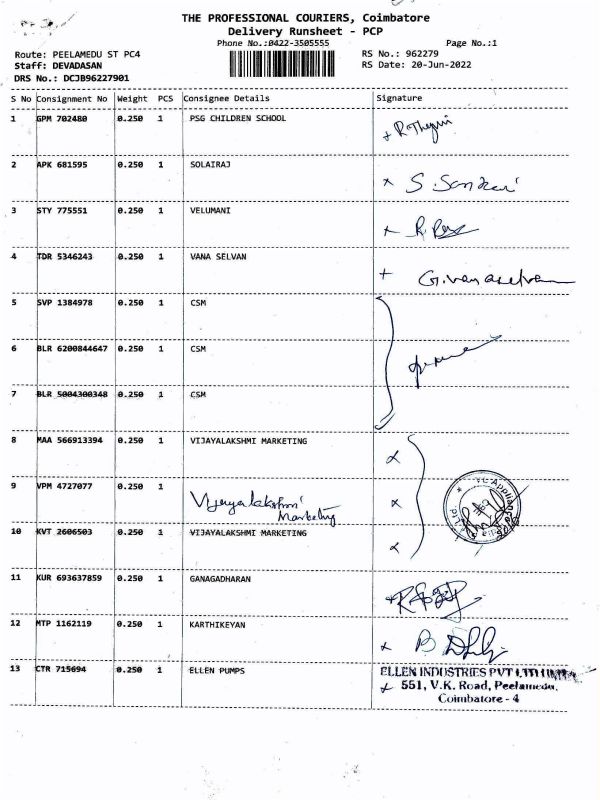 THE PROFESSIONAL COURIERS, Coimbatore
Delivery Runsheet - PCP
Phone No.:0422-3505555
Page No.:1
Route: PEELAMEDU ST PC4
RS No.: 962279
Staff: DEVADASAN
RS Date: 20-Jun-2022
DRS No.: DCJB96227901
S No Consignment No Weight PCS Consignee Details Signature
1 GPM 702480 0.250 1 PSG CHILDREN SCHOOL
2 APK 681595 0.250 1 SOLAIRAJ
S. Sankari
3 STY 775551 0.250 1 VELUMANI
4 TDR 5346243 0.250 1 VANA SELVAN
G. vanaselvan
5 SVP 1384978 0.250 1 CSM
6 BLR 6200844647 0.250 1 CSM
7 BLR 5004300348 0.250 1 CSM
8 MAA 566913394 0.250 1 VIJAYALAKSHMI MARKETING
9 VPM 4727077 0.250 1
Vijayalakshmi
Marketing
10 KVT 2606503 0.250 1 VIJAYALAKSHMI MARKETING
11 KUR 693637859 0.250 1 GANAGADHARAN
12 MTP 1162119 0.250 1 KARTHIKEYAN
13 CTR 715694 0.250 1 ELLEN PUMPS
ELLEN INDUSTRIES PVT LTD
551, V.K. Road, Peelamedu,
Coimbatore - 4